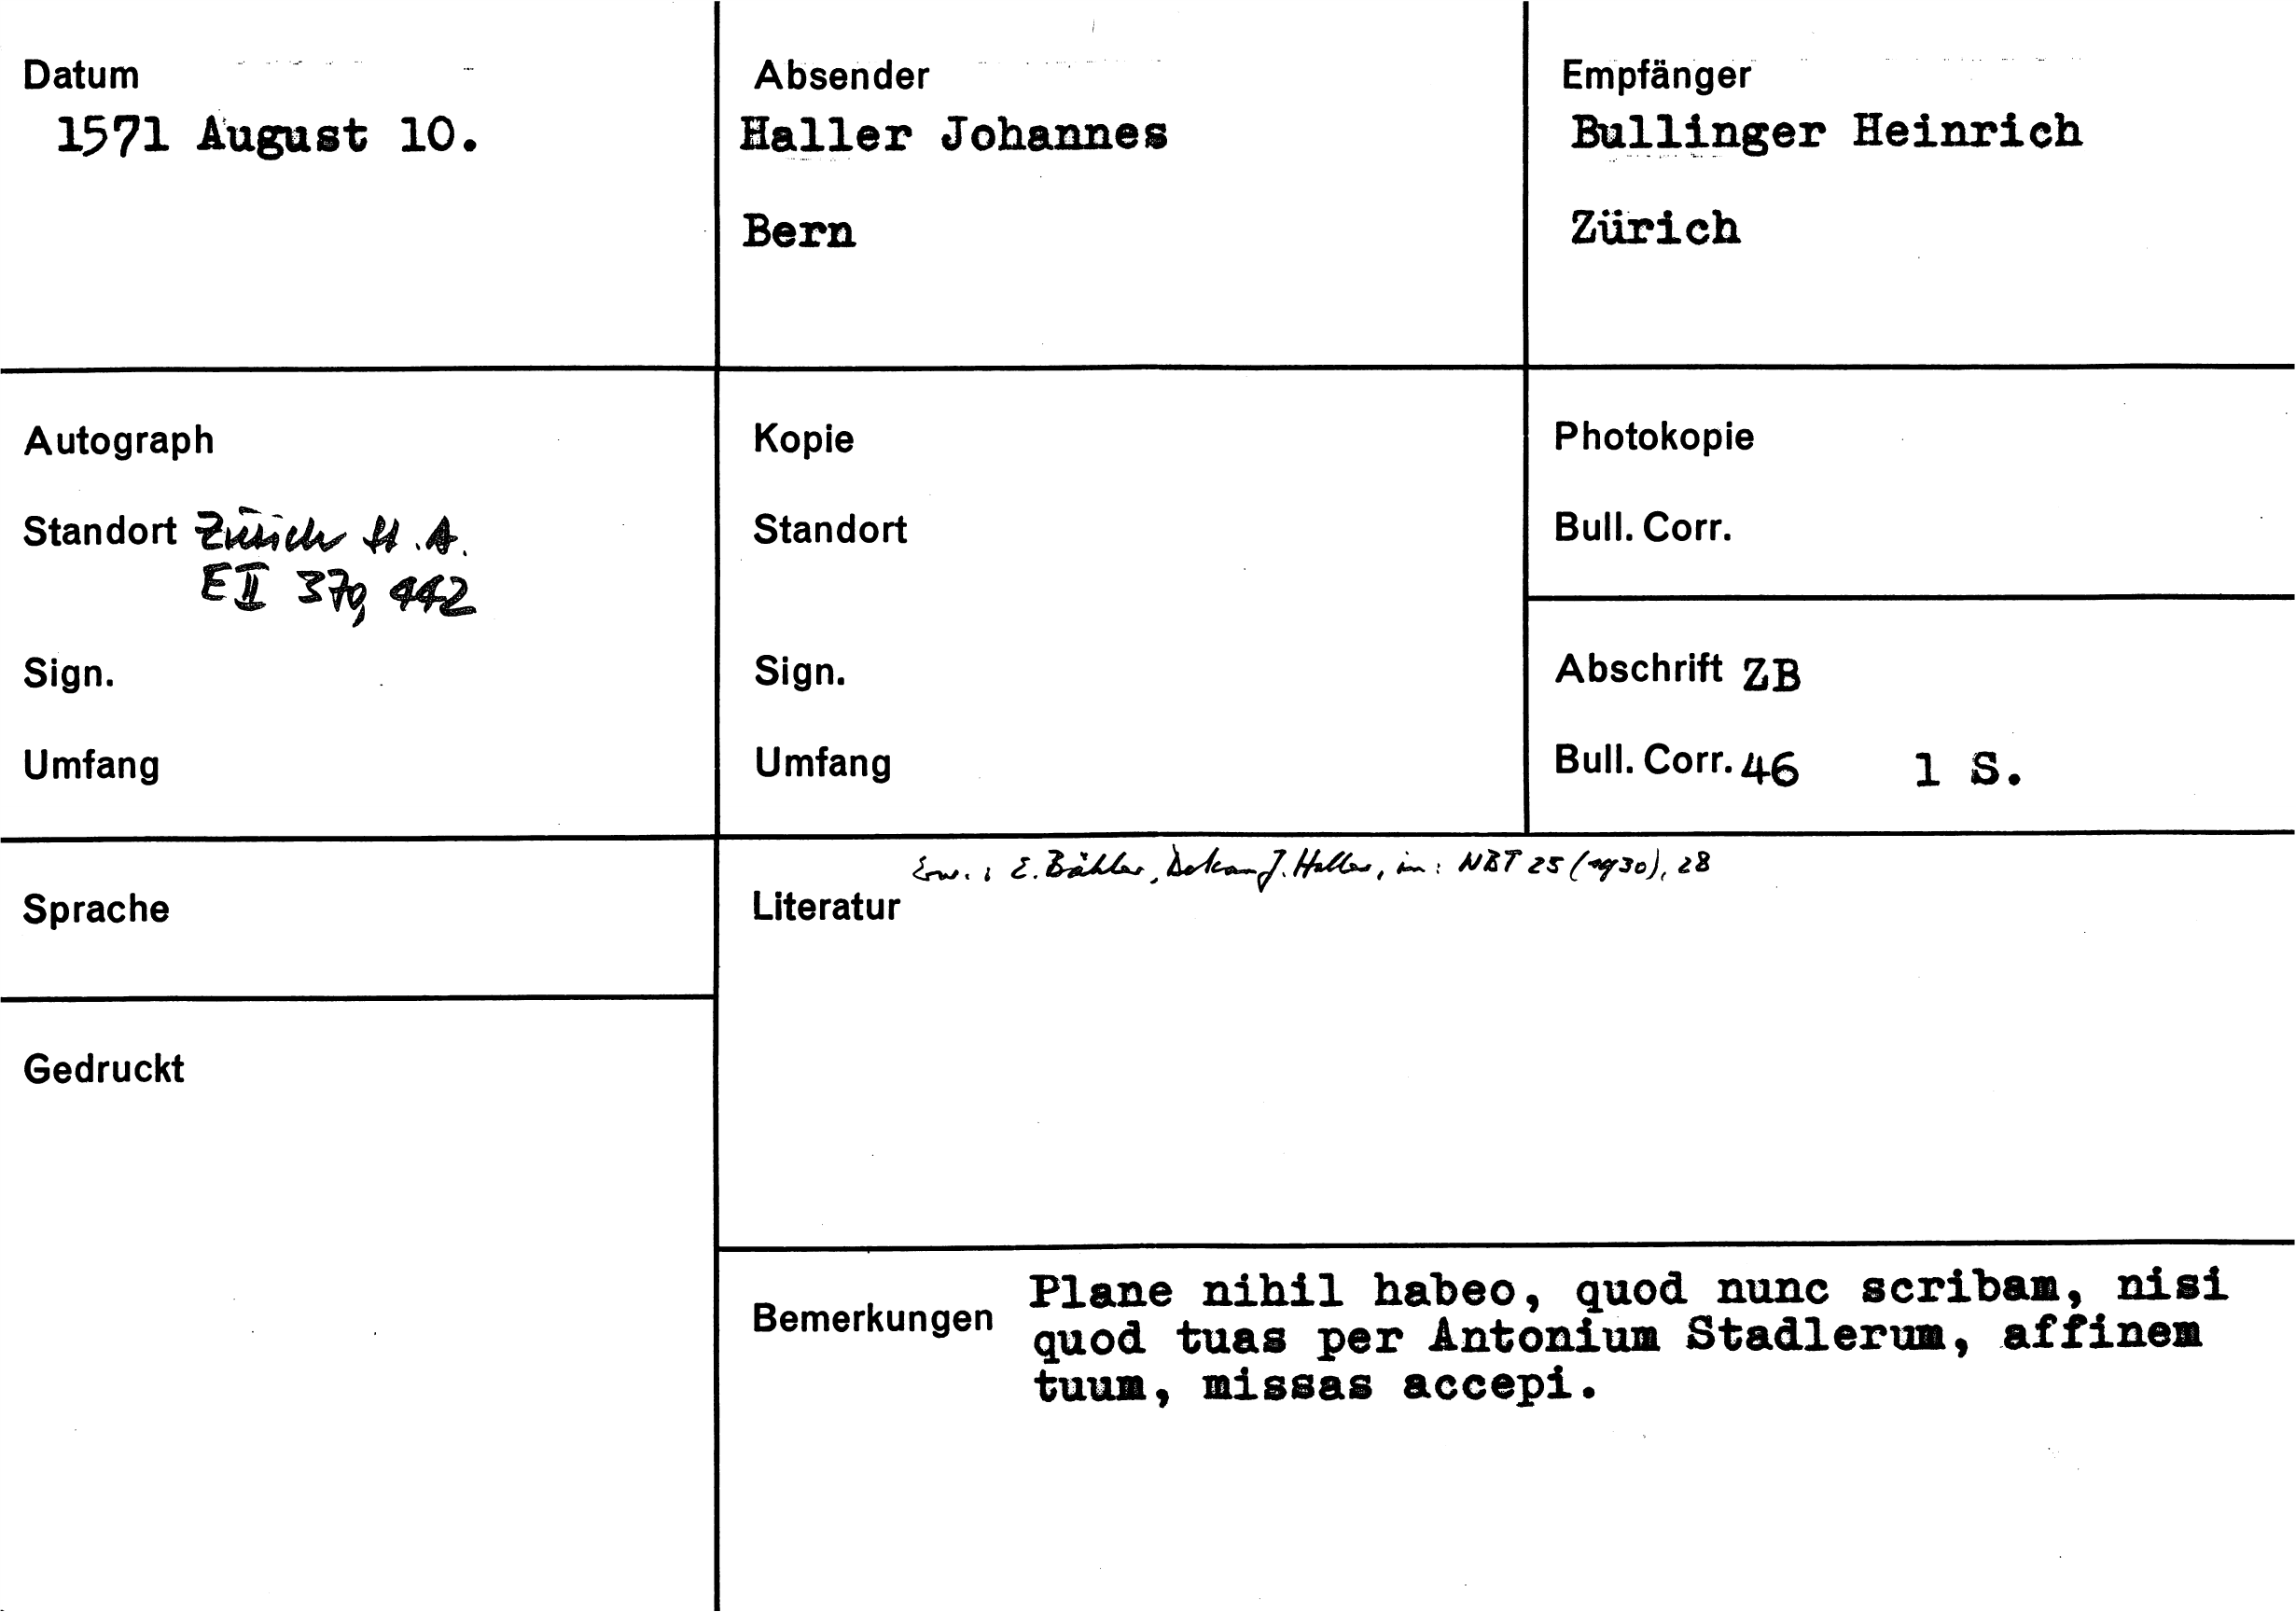 Datum
1571 August 10.
Absender
Haller Johannes
Bern
Empfänger
Bullinger Heinrich
Zürich
Autograph
Standort Zürich St.A.
E II 370, 442
Sign.
Umfang
Kopie
Standort
Sign.
Umfang
Photokopie
Bull. Corr.
Abschrift ZB
Bull. Corr. 46 1 S.
Sprache
Gedruckt
Erw.: E. Bähler, Dekan J. Haller, in: NBT 25 (1930), 28
Literatur
Bemerkungen
Plane nihil habeo, quod nunc scribam, nisi
quod tuas per Antonium Stadlerum, affinem
tuum, missas accepi.